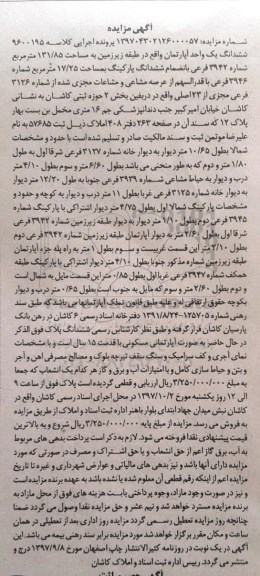 آگهی مزایده
شماره مزایده: ۱۳۹۷۰۴۳۰۲۱۲۶۰۰۰۰۵۷ پرونده اجرایی کلاسه ۹۶۰۰۱۹۵
ششدانگ یک واحد آپارتمان واقع در زیرزمین به مساحت ۱۳۱/۸۵ مترمربع
شماره ۳۹۴۲ فرعی بانضمام ششدانگ پارکینگ بمساحت ۱۷/۲۵ مترمربع شماره
۳۹۴۶ فرعی با قدرالسهم از عرصه مشاعی و مشاعات مجزی شده از شماره ۳۱۲۶
فرعی مجزی از ۲۳ اصلی واقع در دریفین بخش ۲ حوزه ثبتی کاشان به نشانی
کاشان خیابان امیرکبیر جنب دندانپزشکی جم ۱۶ متری مخمل بن بست بهار
پلاک ۱۲ که سند آن در صفحه ۲۶۳ دفتر ۴۰۸ املاک ذیل ثبت ۵۷۶۸۵ به نام
علیرضا مومن ثبت و سند مالکیت صادر و تسلیم شده است با حدود و مشخصات
شمالا بطول ۱۰/۶۵ متر دیوار به دیوار خانه شماره ۳۱۲۷ فرعی شرقا اول به طول
۱/۸۰ متر و دوم که به طور منحنی می باشد بطول ۶/۶۰ متر و سوم بطول ۴/۱۰ متر
درب و دیوار به حیاط مشاعی شماره ۳۹۳۹ فرعی جنوبا به طول ۱۲/۲۰ متر دیوار
به دیوار خانه شماره ۳۱۲۵ فرعی غربا بطول ۱۱ متر درب و دیوار به کوچه و حدود و
مشخصات پارکینگ شمالا اول بطول ۴/۷۵ متر دیوار اشتراکی با پارکینگ شماره
۳۹۴۵ فرعی دوم بطول ۱/۱۰ متر دیوار به دیوار طبقه زیرزمین شماره ۳۹۴۲ فرعی
شرقا اول بطول ۲/۶۰ متر به دیوار طبقه زیرزمین شماره ۳۹۴۲ فرعی دوم
بطول ۲/۱۰ متر این قسمت غربیست و سوم بطول ۱ متر به راه پله جزء آپارتمان
طبقه زیرزمین شماره مذکور جنوبا بطول ۴/۱۰ متر دیوار اشتراکی با پارکینگ طبقه
همکف شماره ۳۹۴۷ فرعی غربا اول بطول ۰/۸۵ متر این قسمت مایل به شمال است
و دوم بطول ۲/۶۰ متر و سوم که مایل به جنوب است بطول ۰/۶۵ متر درب و دیوار
بکوچه حقوق ارتفاقی له و علیه طبق قانون تملک آپارتمانها می باشد که طبق سند
رهنی شماره ۱۲۵۷۰۵-۱۳۹۱/۸/۲۴ دفترخانه اسناد رسمی ۶ کاشان در رهن بانک
پارسیان کاشان قرار گرفته و طبق نظر کارشناس رسمی ششدانگ پلاک فوق الذکر
در حال حاضر به صورت آپارتمانی مسکونی با قدمت ۱۵ سال است و با مشخصات
نمای آجری و کف سرامیک و سنگ سقف تیرچه بلوک و مصالح مصرفی آهن و آجر
و بتن و حیاط سازی کامل و با امتیازات آب و برق و گاز هر کدام یک انشعاب که جمعا
به مبلغ ۳/۲۵۰/۰۰۰/۰۰۰ ریال ارزیابی و قطعی گردیده است پلاک فوق از ساعت ۹
الی ۱۲ روز یکشنبه مورخ ۱۳۹۷/۱۰/۲ در محل اجرای اسناد رسمی کاشان واقع در
کاشان نبش میدان جهاد ابتدای بلوار باهنر اداره ثبت اسناد و املاک از طریق مزایده
به فروش می رسد. مزایده از مبلغ پایه ۳/۲۵۰/۰۰۰/۰۰۰ ریال شروع و به بالاترین
قیمت پیشنهادی نقدا فروخته می شود. لازم به ذکر است پرداخت بدهی های مربوط
به آب، برق گاز اعم از حق انشعاب و یا حق اشتراک و مصرف در صورتی که مورد
مزایده دارای آنها باشد و نیز بدهی های مالیاتی و عوارض شهرداری و غیره تا تاریخ
مزایده اعم از اینکه رقم قطعی آن معلوم شده یا نشده باشد به عهده برنده مزایده است
و نیز در صورت وجود مازاد، وجوه پرداختی بابت هزینه های فوق از محل مازاد به
برنده مزایده مسترد خواهد شد و نیم عشر و حق مزایده نقدا وصول می گردد ضمنا
چنانچه روز مزایده تعطیل رسمی گردد مزایده روز اداری بعد از تعطیلی در همان
ساعت و مکان مقرر برگزار خواهد شد مورد مزایده برابر سند رهنی بیمه می باشد. این
آگهی در یک نوبت در روزنامه کثیرالانتشار چاپ اصفهان مورخ ۱۳۹۷/۹/۸ درج و
منتشر می گردد. رییس اداره ثبت اسناد و املاک کاشان